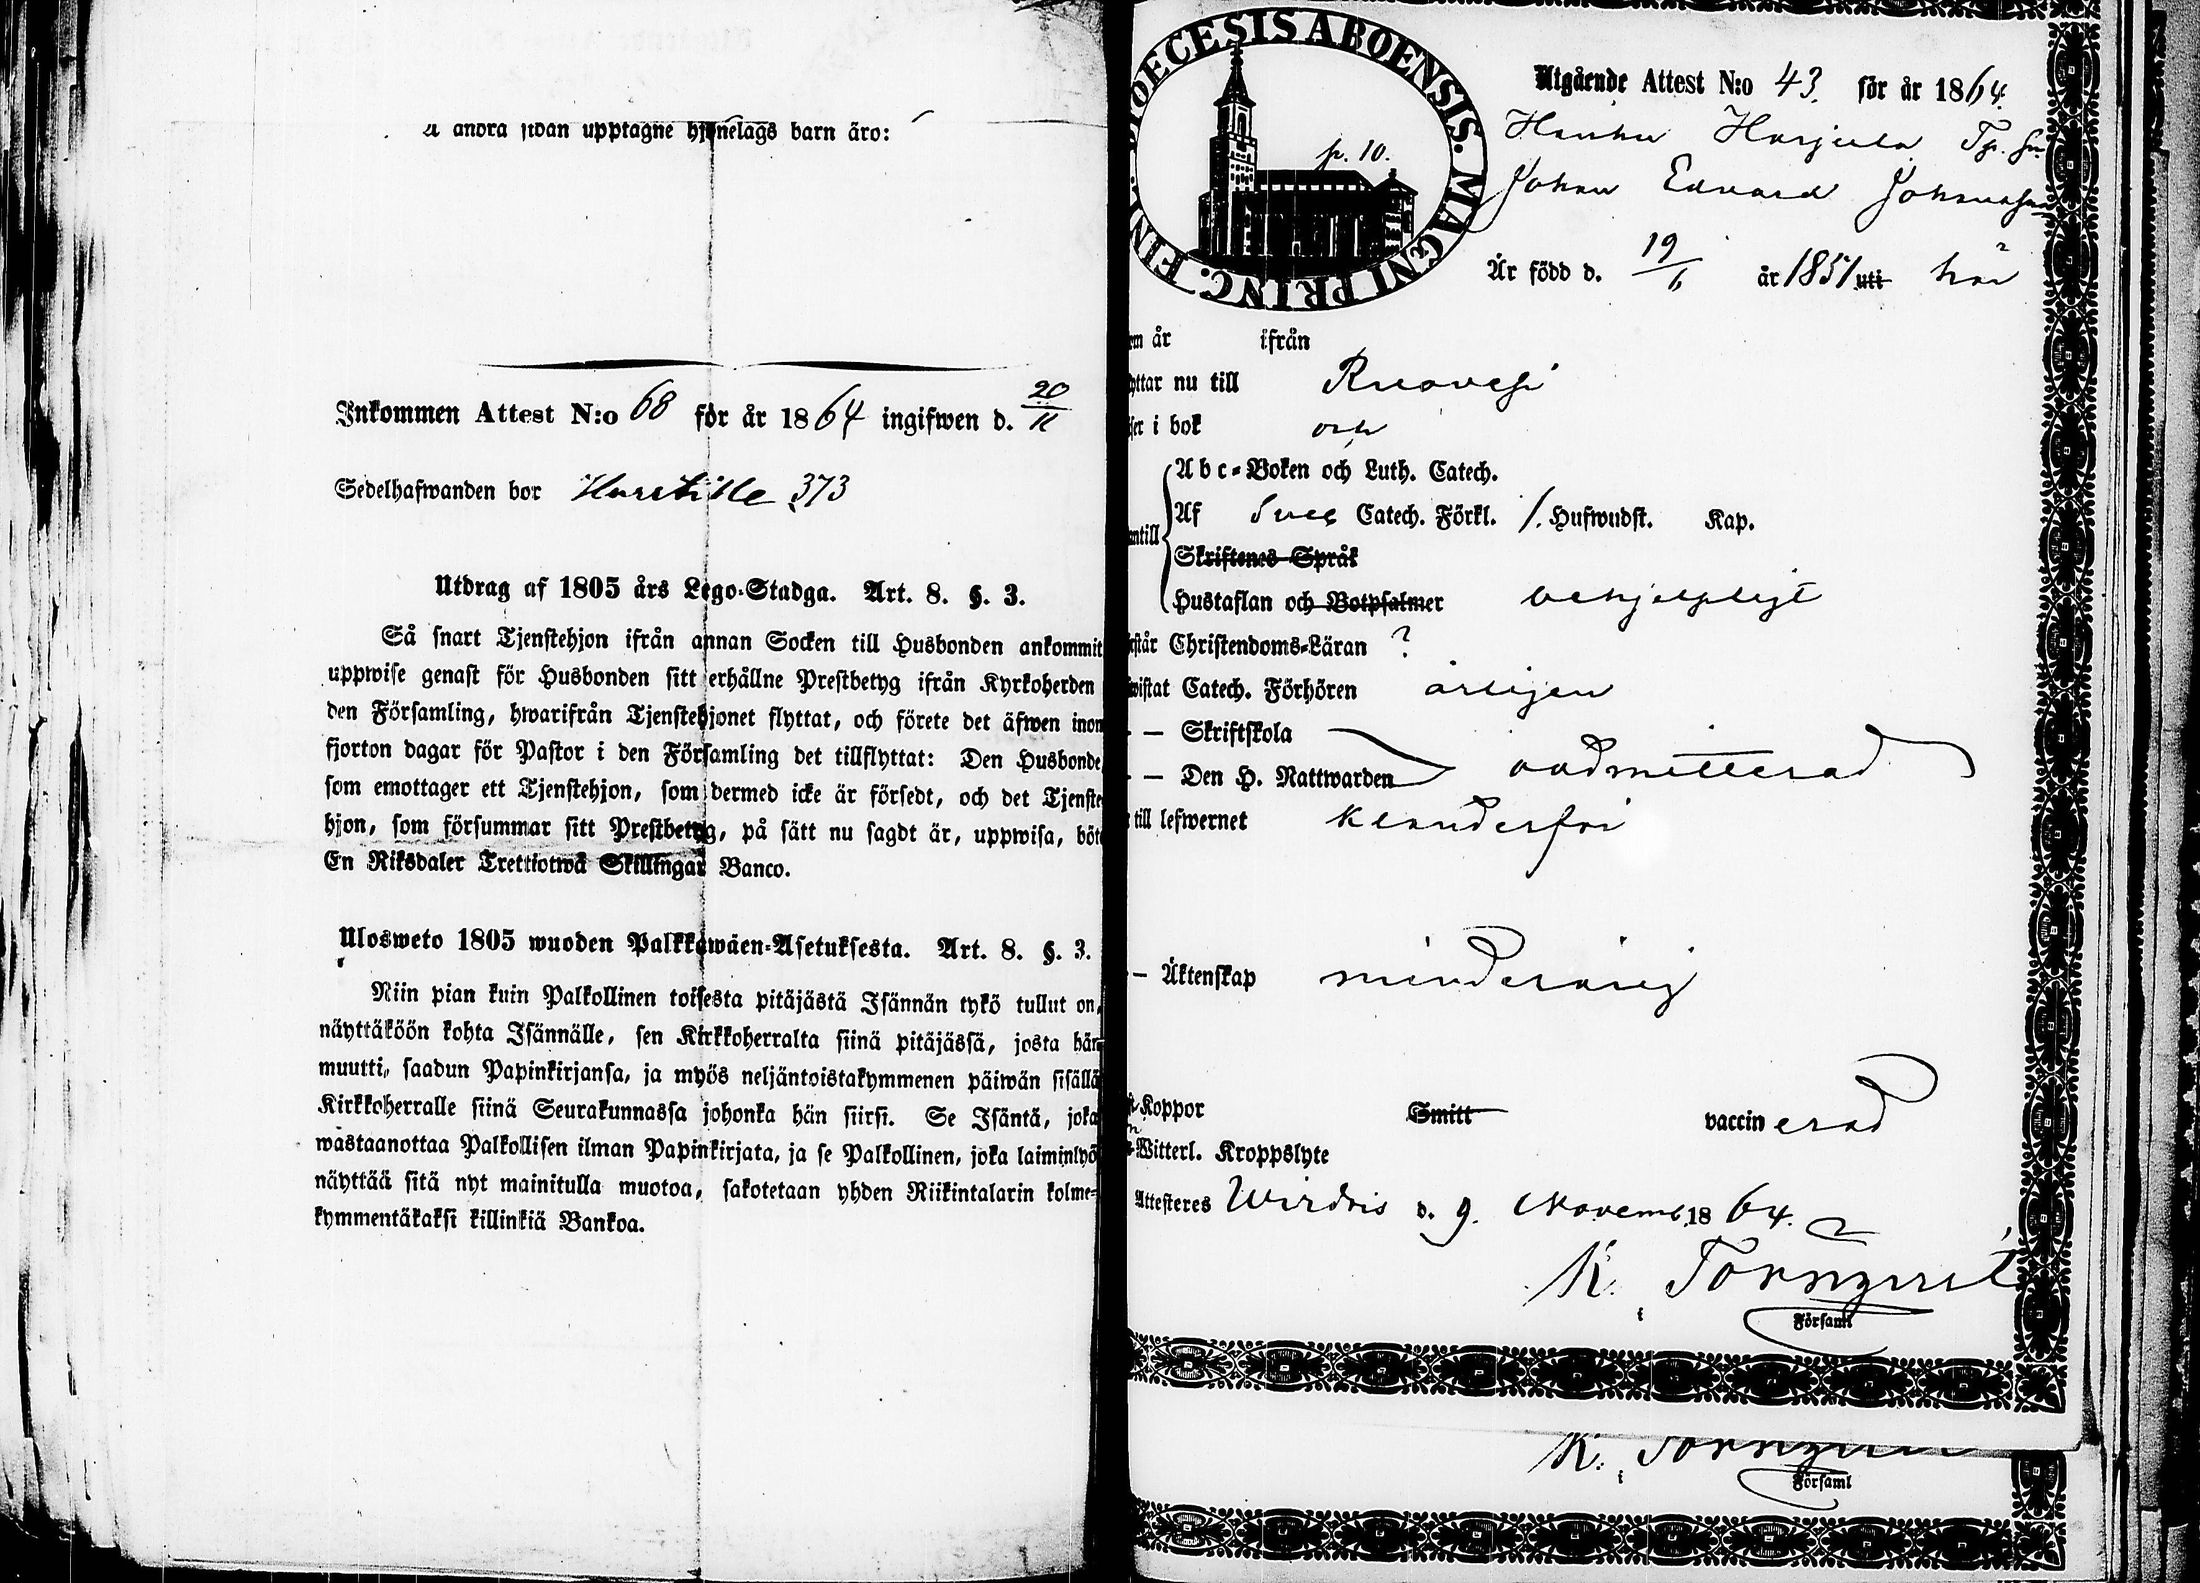 å andra sidan upptagne hjonelags barn äro:
Inkommen Attest N:o 68 för år 1864 ingifwen d. 20/11
Sedelhafwanden bor 373
Utdrag af 1805 års Lego-Stadga. Art. 8. §. 3.
Så snart Tjenstehjon ifrån annan Socken till Husbonden ankommit
uppwise genast för Husbonden sitt erhållne Prestbetyg ifrån Kyrkoherden
den Församling, hwarifrån Tjenstehjonet flyttat, och förete det äfwen inom
fjorton dagar för Pastor i den Församling det tillflyttat: Den Husbonde,
som emottager ett Tjenstehjon, som dermed icke är försedt, och det Tjenste-
hjon, som försummar sitt Prestbetyg, på sätt nu sagdt är, uppwisa, böte
En Riksdaler Trettiotwå Skillingar Banco.
Ulosweto 1805 wuoden Palkkawäen-Asetuksesta. Art. 8. §. 3.
Niin pian kuin Palkollinen toisesta pitäjästä Isännän tykö tullut on,
näyttäköön kohta Isännälle, sen Kirkkoherralta siinä pitäjässä, josta hän
muutti, saadun Papinkirjansa, ja myös neljäntoistakymmenen päiwän sisällä
Kirkkoherralle siinä Seurakunnassa johonka hän siirsi. Se Isäntä, joka
wastaanottaa Palkollisen ilman Papinkirjata, ja se Palkollinen, joka laiminlyö
näyttää sitä nyt mainitulla muotoa, sakotetaan yhden Riikintalarin kolme-
kymmentäkaksi killinkiä Bankoa.
DIOECESIS ABOENSIS. MAGNI PRINC. FINL.
p. 10.
Utgående Attest N:o 43. för år 1864.
Hauhu Harjula Tp. sn
Johan Edvard Johansson
Är född d. 19/6 år 1851 uti här
em år ifrån
yttar nu till Ruovesi
ser i bok och
Abc-Boken och Luth. Catech.
Af Sveb Catech. Förkl. 1. Hufwudst. Kap.
antill
Skriftenes Språk
Hustaflan och Botpsalmer behjelpligt
rstår Christendoms-Läran ?
wistat Catech. Förhören årligen
— Skriftskola
— Den H. Nattwarden oadmitterad
till lefwernet klanderfri
— Äktenskap minderårig
Koppor Smitt vaccinerad
Witterl. Kroppslyte
Attesteres Wirdois d. 9. Novemb. 1864.
K. Törnqvist
i Församl
K. Törnqvist
i Församl